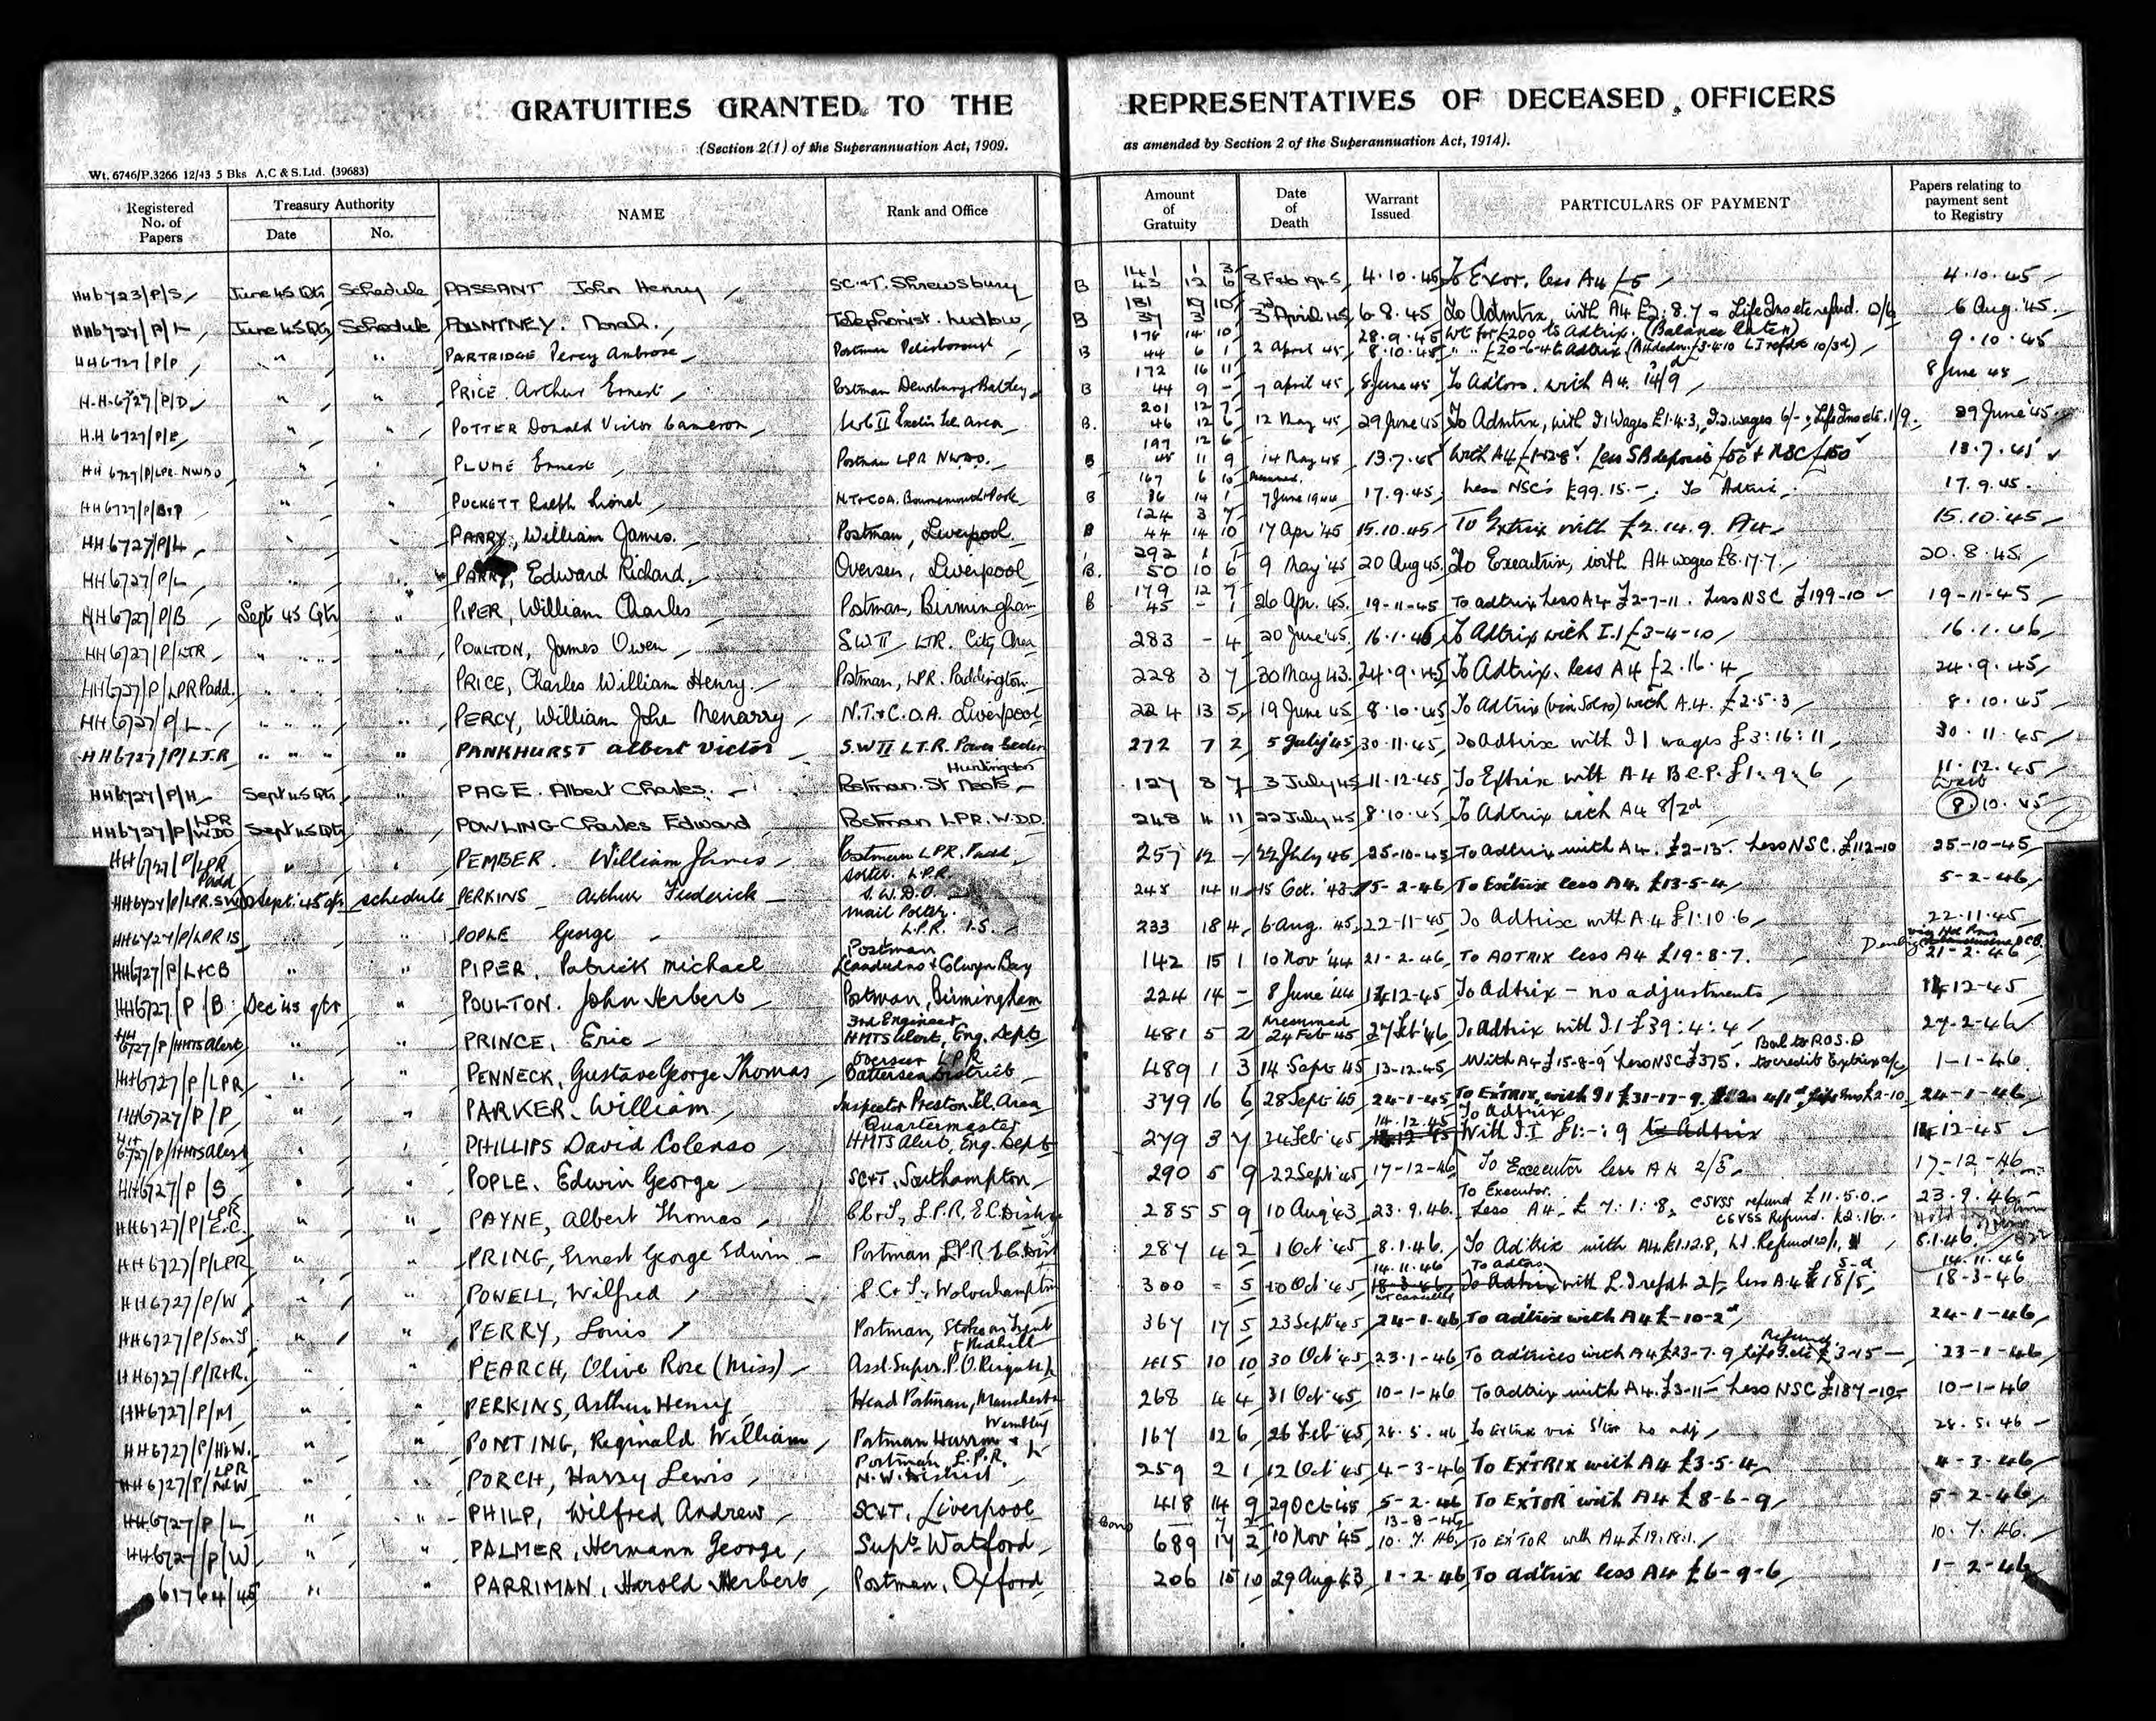 GRATUITIES GRANTED TO THE REPRESENTATIVES OF DECEASED OFFICERS
(Section 2(1) of the Superannuation Act, 1909. as amended by Section 2 of the Superannuation Act, 1914).
Wt. 6746/P.3266 12/43 5 Bks A.C & S.Ltd. (39683)
Registered No. of Papers Treasury Authority Date No. NAME Rank and Office Amount of Gratuity Date of Death Warrant Issued PARTICULARS OF PAYMENT Papers relating to payment sent to Registry
HH6723/P/S June 45 Qtr Schedule PASSANT John Henry SC&T. Shrewsbury B 141 1 3 43 12 6 8 Feb 1945 4.10.45 To Exor. less A4 £5 4.10.45
HH6727/P/L June 45 Qtr Schedule POUNTNEY. Norah. Telephonist. Ludlow B 181 19 10 37 3 3rd April 45 6.8.45 To Admtrix, with A4 £2.8.7 6 Aug. '45.
HH6727/P/P " " PARTRIDGE Percy Ambrose Postman Peterborough B 178 14 10 44 6 1 2 April 45 28.9.45 Wt for £200 to Adtrix. (Balance later)
8.10.45 9.10.45
H.H.6727/P/D " " PRICE Arthur Ernest Postman Dewsbury & Batley B 172 16 11 44 9 - 7 April 45 8 June 45 To Adtors. with A4. 14/9 8 June 45
H.H 6727/P/E " " POTTER Donald Victor Cameron B. 201 12 7 46 12 6 12 May 45 29 June 45 To Admtrix, with I.1 Wages £1.4.3, 29 June '45.
HH 6727/P/LPR. NWDO " " PLUME Ernest Postman LPR NWDO. B 197 12 6 11 9 14 May 45 13.7.45 13.7.45
HH6727/P/B&P " " PUCKETT Ralph Lionel B 167 6 10 36 14 1 Presumed 7 June 1944 17.9.45 Less NSC's £99.15.-. To Adtrix. 17.9.45.
HH6727/P/L " " PARRY, William James. Postman, Liverpool. B 124 3 7 44 14 10 17 Apr '45 15.10.45 To Extrix with £2.14.9. A4 15.10.45
HH6727/P/L " " PARRY, Edward Richard. Overseer, Liverpool B. 292 1 1 50 10 6 9 May '45 20 Aug 45 To Executrix, with A4 wages £8.17.7. 20.8.45.
HH6727/P/B Sept 45 Qtr " PIPER, William Charles Postman, Birmingham B 179 12 7 45 - 1 26 Apr. 45. 19-11-45 To adtrix Less A4 £2-7-11. Less NSC £199-10 19-11-45
HH6727/P/LTR " " POULTON, James Owen SW II LTR. City Area 283 - 4 20 June '45 16.1.46 To Adtrix with I.1 £3-4-10 16.1.46
HH6727/P/LPR Padd. " " PRICE, Charles William Henry. Postman, LPR. Paddington 228 3 7 30 May 43. 24.9.45 To Adtrix. less A4 £2.16.4 24.9.45
HH6727/P/L. " " PERCY, William John Menarry N.T.&C.O.A. Liverpool 224 13 5 19 June 45 8.10.45 To Adtrix (via Solrs) with A.4. £2.5.3 8.10.45
HH6727/P/LT.R " " PANKHURST Albert Victor S.W II L.T.R. Power Section 272 7 2 5 July '45 30.11.45 To Adtrix with I 1 wages £3:16:11 30.11.45
HH6727/P/H Sept 45 Qtr " PAGE. Albert Charles. Huntingdon Postman. St Neots 127 8 7 3 July 45 11.12.45 To Extrix with A4 B.C.P. £1.9.6 11.12.45
HH6727/P/LPR WDO Sept 45 Qtr " POWLING Charles Edward Postman LPR. W.D.O. 248 4 11 22 July 45 8.10.45 To Adtrix with A4 8/2d 8.10.45
HH6727/P/LPR Padd " " PEMBER. William James Postman LPR. Padd. 257 12 - 22 July 45 25-10-45 To adtrix with A4. £2-13-. Less NSC. £112-10 25-10-45
HH6727/P/LPR. SWDO Sept. 45 qtr schedule PERKINS Arthur Frederick Sorter. L.P.R. S.W.D.O. 248 14 11 15 Oct. '43 5-2-46 To Extrix less A4. £13-5-4 5-2-46
HH6727/P/LPR IS " " POPLE George Mail Porter. L.P.R. I.S. 233 18 4 6 Aug. 45 22-11-45 To Adtrix with A.4 £1.10.6 22.11.45
HH6727/P/L&CB " " PIPER, Patrick Michael Postman Llandudno & Colwyn Bay 142 15 1 10 Nov '44 21-2-46 To ADTRIX less A4 £19.8.7. 21-2-46
HH6727/P/B Dec 45 qtr " POULTON. John Herbert Postman, Birmingham 224 14 - 8 June '44 14-12-45 To Adtrix - no adjustments 14-12-45
HH 6727/P/HMTS Alert " " PRINCE, Eric 3rd Engineer HMTS Alert, Eng. Dept 481 5 2 Presumed 24 Feb 45 27 Feb '46 To Adtrix with I.1 £39:4:4 27-2-46
HH6727/P/LPR " " PENNECK, Gustave George Thomas Overseer LPR Battersea District 489 1 3 14 Sept 45 13-12-45 With A4 £15-8-9 Less NSC £375. Bal to P.O.S.D to credit Extrix a/c 1-1-46
HH6727/P/P " " PARKER. William Inspector Preston Tel. Area 379 16 6 28 Sept '45 24-1-45 To EXTRIX, with I 1 £31-17-9. 24-1-46
HH 6727/P/HMTS Alert " " PHILLIPS David Colenso Quartermaster HMTS Alert, Eng. Dept 279 3 7 24 Feb '45 14.12.45 To Adtrix With I.I £1:-:9 to Adtrix 14-12-45
HH6727/P/S " " POPLE. Edwin George SC&T, Southampton 290 5 9 22 Sept 45 17-12-46 To Executor less A4 2/5 17-12-46
HH6727/P/LPR E.C. " " PAYNE, Albert Thomas L.P.R. E.C. District 285 5 9 10 Aug '43 23.9.46. To Executor. Less A4 £7:1:8, CSVSS refund £11.5.0. CSVSS Refund. 23.9.46
HH6727/P/LPR " " PRING, Ernest George Edwin Postman L.P.R. E.C. Dist 287 4 2 1 Oct '45 8.1.46. To Adtrix with A4 £1.12.8, 8.1.46.
HH6727/P/W " " POWELL, Wilfred S.C. & T., Wolverhampton 300 - 5 10 Oct '45 14.11.46 18-3-46 wt cancelled To adtors To Adtrix with L.I refdt 2/- less A.4 14.11.46 18-3-46
HH6727/P/S on T " " PERRY, Louis Postman, Stoke on Trent 367 17 5 23 Sept '45 24-1-46 To adtrix with A4 £-10-2d 24-1-46
HH6727/P/R&R. " " PEARCH, Olive Rose (Miss) Asst. Super. P.O. Reigate & Redhill 415 10 10 30 Oct '45 23-1-46 To adtrices with A4 £23-7-9 Refund £3-15- 23-1-46
HH6727/P/M " " PERKINS, Arthur Henry Head Postman, Manchester 268 4 4 31 Oct '45 10-1-46 To adtrix with A4. £3-11- Less NSC £187-10- 10-1-46
HH6727/P/H&W. " " PONTING, Reginald William Postman Harrow & Wembley 167 12 6 26 Feb '45 28.5.46 To Extrix via Slor no adj 28.5.46
HH6727/P/LPR NW " " PORCH, Harry Lewis Postman L.P.R. N.W. District 259 2 1 12 Oct '45 4-3-46 To EXTRIX with A4 £3-5-4 4-3-46
HH6727/P/L " " PHILP, Wilfred Andrew SC&T, Liverpool 418 14 9 29 Oct '45 5-2-46 To EXTOR with A4 £8-6-9 5-2-46
HH6727/P/W " " PALMER, Hermann George Supt. Watford 689 17 2 10 Nov '45 13-8-46 10.7.46 To EXTOR with A4 £19.18.1. 10.7.46.
61764/45 " " PARRIMAN, Harold Herbert Postman, Oxford 206 15 10 29 Aug 43 1-2-46 To adtrix less A4 £6-9-6 1-2-46